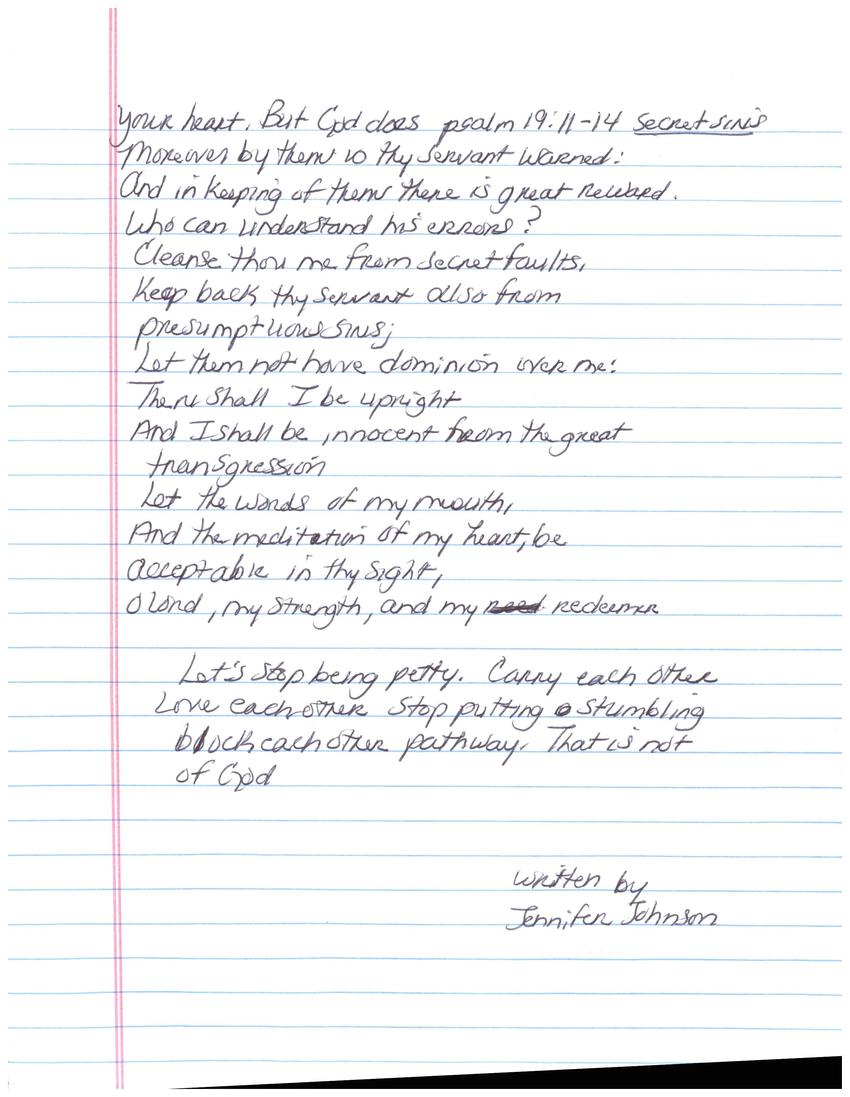 your heart. But God does psalm 19:11-14 secret sins
Moreover by them is thy servant warned:
And in keeping of them there is great reward.
Who can understand his errors?
Cleanse thou me from secret faults,
Keep back thy servant also from
presumptuous sins;
Let them not have dominion over me:
Then shall I be upright
And I shall be innocent from the great
transgression
Let the words of my mouth,
And the meditation of my heart, be
acceptable in thy sight,
O Lord, my strength, and my redeemer
Let's stop being petty. Carry each other
Love each other Stop putting a stumbling
block each other pathway. That is not
of God
written by
Jennifer Johnson